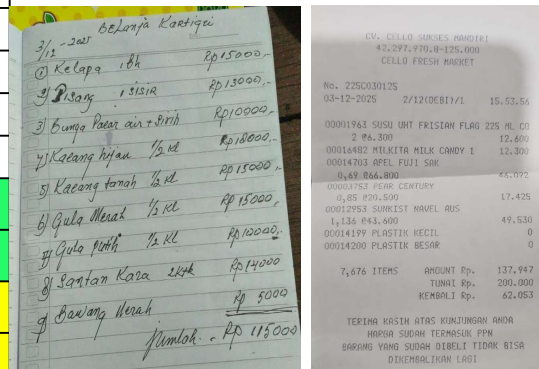 Belanja Kartigei
3/12-2025
1) Kelapa 1 Bh Rp 15000,-
2) Pisang 1 SISIR Rp 13000,-
3) Bunga Pacar air + Sirih Rp 10000,-
4) Kacang hijau 1/2 Kl Rp 18000,-
5) Kacang tanah 1/2 Kl Rp 15000,-
6) Gula Merah 1/2 Kl Rp 15000,
7) Gula putih 1/2 Kl Rp 10000,-
8) Santan Kara 2 Rp 14000
9) Bawang Merah Rp 5000
Jumlah.. Rp 115000
CV. CELLO SUKSES MANDIRI
42.297.970.8-125.000
CELLO FRESH MARKET
No. 225C030125
03-12-2025 2/12(DEBI)/1 15.53.56
00001963 SUSU UHT FRISIAN FLAG 225 ML CO
2 @6.300 12.600
00016482 MILKITA MILK CANDY 1 12.300
00014703 APEL FUJI SAK
0,69 @66.800 46.092
00003753 PEAR CENTURY
0,85 @20.500 17.425
00012953 SUNKIST NAVEL AUS
1,136 @43.600 49.530
00014199 PLASTIK KECIL 0
00014200 PLASTIK BESAR 0
7,676 ITEMS AMOUNT Rp. 137.947
TUNAI Rp. 200.000
KEMBALI Rp. 62.053
TERIMA KASIH ATAS KUNJUNGAN ANDA
HARGA SUDAH TERMASUK PPN
BARANG YANG SUDAH DIBELI TIDAK BISA
DIKEMBALIKAN LAGI